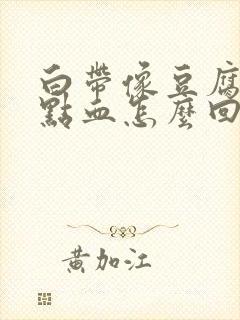 白帶像豆腐
點血怎麼回
黃加江